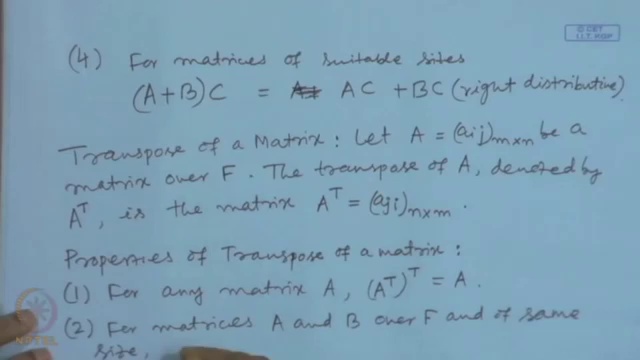 © CET
I.I.T. KGP
(4) For matrices of suitable sizes
(A+B)C = AC + BC (right distributive).
Transpose of a Matrix: Let A = (aij)m×n be a
matrix over F. The transpose of A, denoted by
A^T, is the matrix A^T = (aji)n×m.
Properties of Transpose of a matrix:
(1) For any matrix A, (A^T)^T = A.
(2) For matrices A and B over F and of same
size,
NPTEL